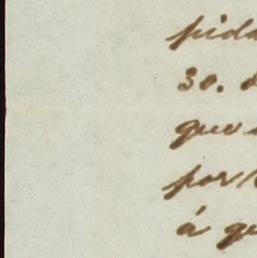 pida
30. d
que
por
á qu